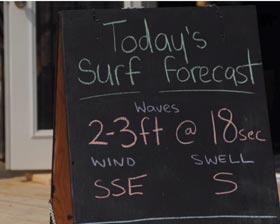 Today's
Surf Forecast
Waves
2-3ft @ 18sec
WIND SWELL
SSE S